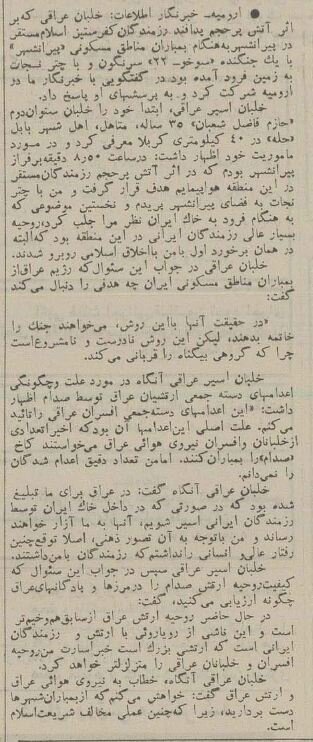 ● ارومیه- خبرنگار اطلاعات: خلبان عراقی که بر
اثر آتش پرحجم پدافند رزمندگان کفرستیز اسلام مستقر
در پیرانشهر به هنگام بمباران مناطق مسکونی «پیرانشهر»
با یک جنگنده «سوخو- ۲۲» سرنگون و با چتر نجات
به زمین فرود آمده بود در گفتگویی با خبرنگار ما در
ارومیه شرکت کرد و به پرسشهای او پاسخ داد.
خلبان اسیر عراقی، ابتدا خود را خلبان ستوان دوم
«حازم فاضل شعبان» ۳۵ ساله، متاهل، اهل شهر بابل
«حله» در ۴۰ کیلومتری کربلا معرفی کرد و در مورد
ماموریت خود اظهار داشت: در ساعت ۸ر۵۰ دقیقه بر فراز
پیرانشهر بودم که در اثر آتش پرحجم رزمندگان مستقر
در این منطقه هواپیمایم هدف قرار گرفت و من با چتر
نجات به فضای پیرانشهر پریدم و نخستین موضوعی که
به هنگام فرود به خاک ایران نظر مرا جلب کرد، روحیه
بسیار عالی رزمندگان ایرانی در این منطقه بود که البته
در همان برخورد اول با من با اخلاق اسلامی روبرو شدند.
خلبان عراقی در جواب این سئوال که رژیم عراق از
بمباران مناطق مسکونی ایران چه هدفی را دنبال می‌کند
گفت:
«در حقیقت آنها با این روش، می‌خواهند جنگ را
خاتمه بدهند، لیکن این روش نادرست و نامشروع است
چرا که گروهی بیگناه را قربانی می‌کند.
خلبان اسیر عراقی آنگاه در مورد علت و چگونگی
اعدامهای دسته جمعی ارتشیان عراق توسط صدام اظهار
داشت: «این اعدامهای دسته جمعی افسران عراقی را تائید
می‌کنم. علت اصلی این اعدامها آن بود که اخیرا تعدادی
از خلبانان و افسران نیروی هوائی عراق می‌خواستند کاخ
«صدام» را بمباران کنند. اما من تعداد دقیق اعدام شدگان
را نمی‌دانم.
خلبان عراقی آنگاه گفت: در عراق برای ما تبلیغ
شده بود که در صورتی که در داخل خاک ایران توسط
رزمندگان ایرانی اسیر شویم، آنها به ما آزار خواهند
رساند و من با توجه به آن تصور ذهنی، اصلا توقع چنین
رفتار عالی و انسانی را نداشتم که رزمندگان با من داشتند.
خلبان اسیر عراقی سپس در جواب این سئوال که
کیفیت روحیه ارتش صدام را در مرزها و پادگانهای عراق
چگونه ارزیابی می‌کنید، گفت:
در حال حاضر روحیه ارتش عراق از سابق هم وخیم‌تر
است و این ناشی از رویاروئی با ارتش و رزمندگان
ایرانی است که ارتشی بزرگ است خبر اسارت من روحیه
افسران و خلبانان عراقی را متزلزل‌تر خواهد کرد.
خلبان عراقی آنگاه، خطاب به نیروی هوائی عراق
و ارتش عراق گفت: خواهش می‌کنم که از بمباران شهرها
دست بردارید، زیرا که چنین عملی مخالف شریعت اسلام
است.